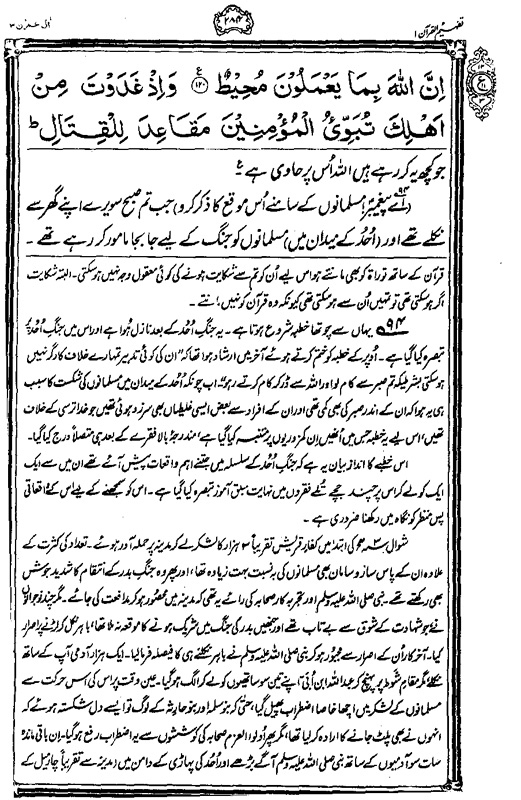 تفہیم القرآن ۱
۲۸۴
اٰل عمرٰن ۳
اِنَّ اللّٰهَ بِمَا يَعْمَلُوْنَ مُحِيْطٌ ۱۲۰ وَاِذْ غَدَوْتَ مِنْ
اَهْلِكَ تُبَوِّئُ الْمُؤْمِنِيْنَ مَقَاعِدَ لِلْقِتَالِ ط
جو کچھ یہ کر رہے ہیں اللہ اُس پر حاوی ہے ع
(اے پیغمبرؐ! ۹۴ مسلمانوں کے سامنے اُس موقع کا ذکر کرو) جب تم صبح سویرے اپنے گھر سے
نکلے تھے اور (اُحُد کے میدان میں) مسلمانوں کو جنگ کے لیے جا بجا مامور کر رہے تھے۔
قرآن کے ساتھ توراۃ کو بھی مانتے ہو اس لیے اُن کو تم سے شکایت ہونے کی کوئی معقول وجہ نہیں ہو سکتی۔ البتہ شکایت
اگر ہو سکتی تھی تو تمہیں اُن سے ہو سکتی تھی کیونکہ وہ قرآن کو نہیں مانتے۔
۹۴ یہاں سے چوتھا خطبہ شروع ہوتا ہے۔ یہ جنگِ اُحُد کے بعد نازل ہوا ہے اور اس میں جنگِ اُحُد پر
تبصرہ کیا گیا ہے۔ اُوپر کے خطبہ کو ختم کرتے ہوئے آخر میں ارشاد ہوا تھا کہ ”ان کی کوئی تدبیر تمہارے خلاف کارگر نہیں
ہو سکتی بشرطیکہ تم صبر سے کام لو اور اللہ سے ڈر کر کام کرتے رہو“۔ اب چونکہ اُحُد کے میدان میں مسلمانوں کی شکست کا سبب
ہی یہ ہوا کہ ان کے اندر صبر کی بھی کمی تھی اور ان کے افراد سے بعض ایسی غلطیاں بھی سرزد ہوئی تھیں جو خدا ترسی کے خلاف
تھیں، اس لیے یہ خطبہ جس میں اُنھیں اِن کمزوریوں پر متنبہ کیا گیا ہے، مندرجۂ بالا فقرے کے بعد ہی متصلاً درج کیا گیا۔
اس خطبے کا اندازِ بیان یہ ہے کہ جنگِ اُحُد کے سلسلہ میں جتنے اہم واقعات پیش آئے تھے ان میں سے ایک
ایک کو لے کر اس پر چند جچے تُلے فقروں میں نہایت سبق آموز تبصرہ کیا گیا ہے۔ اس کو سمجھنے کے لیے اس کے واقعاتی
پس منظر کو نگاہ میں رکھنا ضروری ہے۔
شوال سنہ ۳ ھ کی ابتدا میں کفارِ قریش تقریباً ۳ ہزار کا لشکر لے کر مدینہ پر حملہ آور ہوئے۔ تعداد کی کثرت کے
علاوہ ان کے پاس ساز و سامان بھی مسلمانوں کی بہ نسبت بہت زیادہ تھا، اور پھر وہ جنگِ بدر کے انتقام کا شدید جوش
بھی رکھتے تھے۔ نبی صلی اللہ علیہ وسلم اور تجربہ کار صحابہ کی رائے یہ تھی کہ مدینہ میں محصور ہو کر مدافعت کی جائے۔ مگر چند نوجوانوں
نے، جو شہادت کے شوق سے بے تاب تھے اور جنھیں بدر کی جنگ میں شریک ہونے کا موقعہ نہ ملا تھا، باہر نکل کر لڑنے پر اصرار
کیا۔ آخر کار اُن کے اصرار سے مجبور ہو کر نبی صلی اللہ علیہ وسلم نے باہر نکلنے ہی کا فیصلہ فرمالیا۔ ایک ہزار آدمی آپ کے ساتھ
نکلے مگر مقامِ شَوط پر پہنچ کر عبداللہ ابن اُبی اپنے تین سو ساتھیوں کو لے کر الگ ہو گیا۔ عین وقت پر اس کی اس حرکت سے
مسلمانوں کے لشکر میں اچھا خاصا اضطراب پھیل گیا، حتیٰ کہ بنو سلمہ اور بنو حارثہ کے لوگ تو ایسے دل شکستہ ہوئے کہ
انہوں نے بھی پلٹ جانے کا ارادہ کر لیا تھا، مگر پھر اُولو العزم صحابہ کی کوششوں سے یہ اضطراب رفع ہو گیا۔ اِن باقی ماندہ
سات سو آدمیوں کے ساتھ نبی صلی اللہ علیہ وسلم آگے بڑھے اور اُحُد کی پہاڑی کے دامن میں (مدینہ سے تقریباً چار میل کے